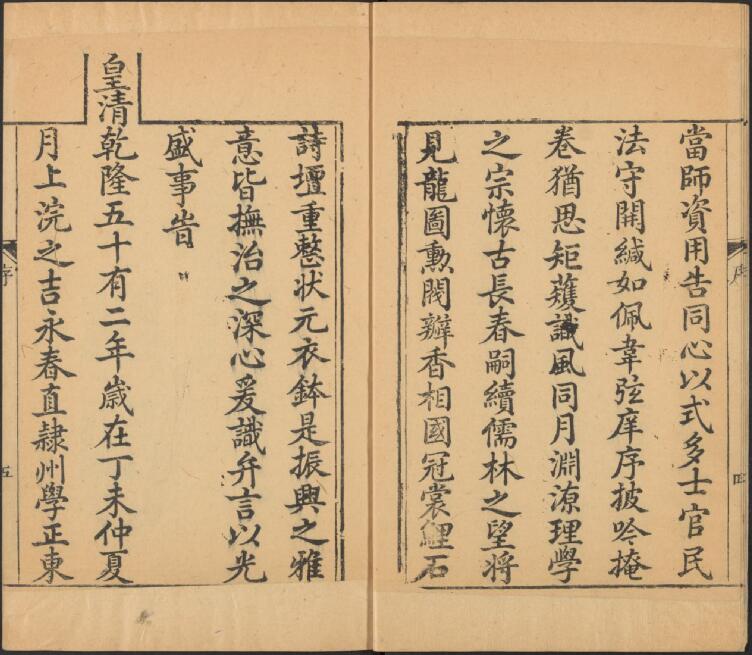 當師資用告同心以式多士官民
法守開緘如佩韋弦庠序披吟掩
卷猶思矩矱識風同月淵源理學
之宗懷古長春嗣續儒林之望將
見龍圖勲閥辦香相國冠裳鯉石
詩壇重整状元衣鉢是振興之雅
意皆撫治之深心爰識弁言以光
盛事旹
皇清乾隆五十有二年歲在丁未仲夏
月上浣之吉永春直隸州學正東
序
四
序
五